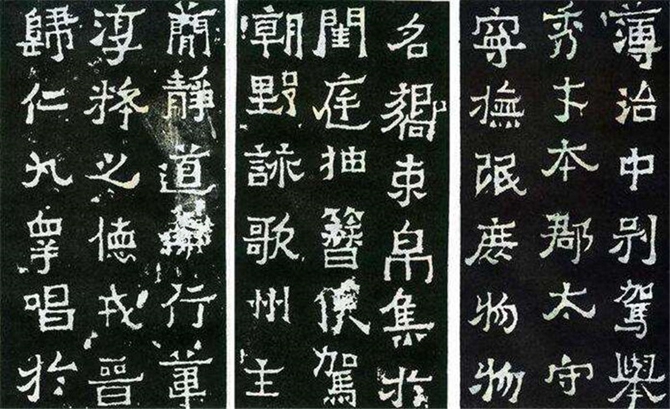 簡靜道兼行葦
淳粹之德戎晉
歸仁九皋唱於
名響束帛集於
閨庭抽簪俟駕
朝野詠歌州主
簿治中別駕舉
秀才本郡太守
寧撫氓庶物物